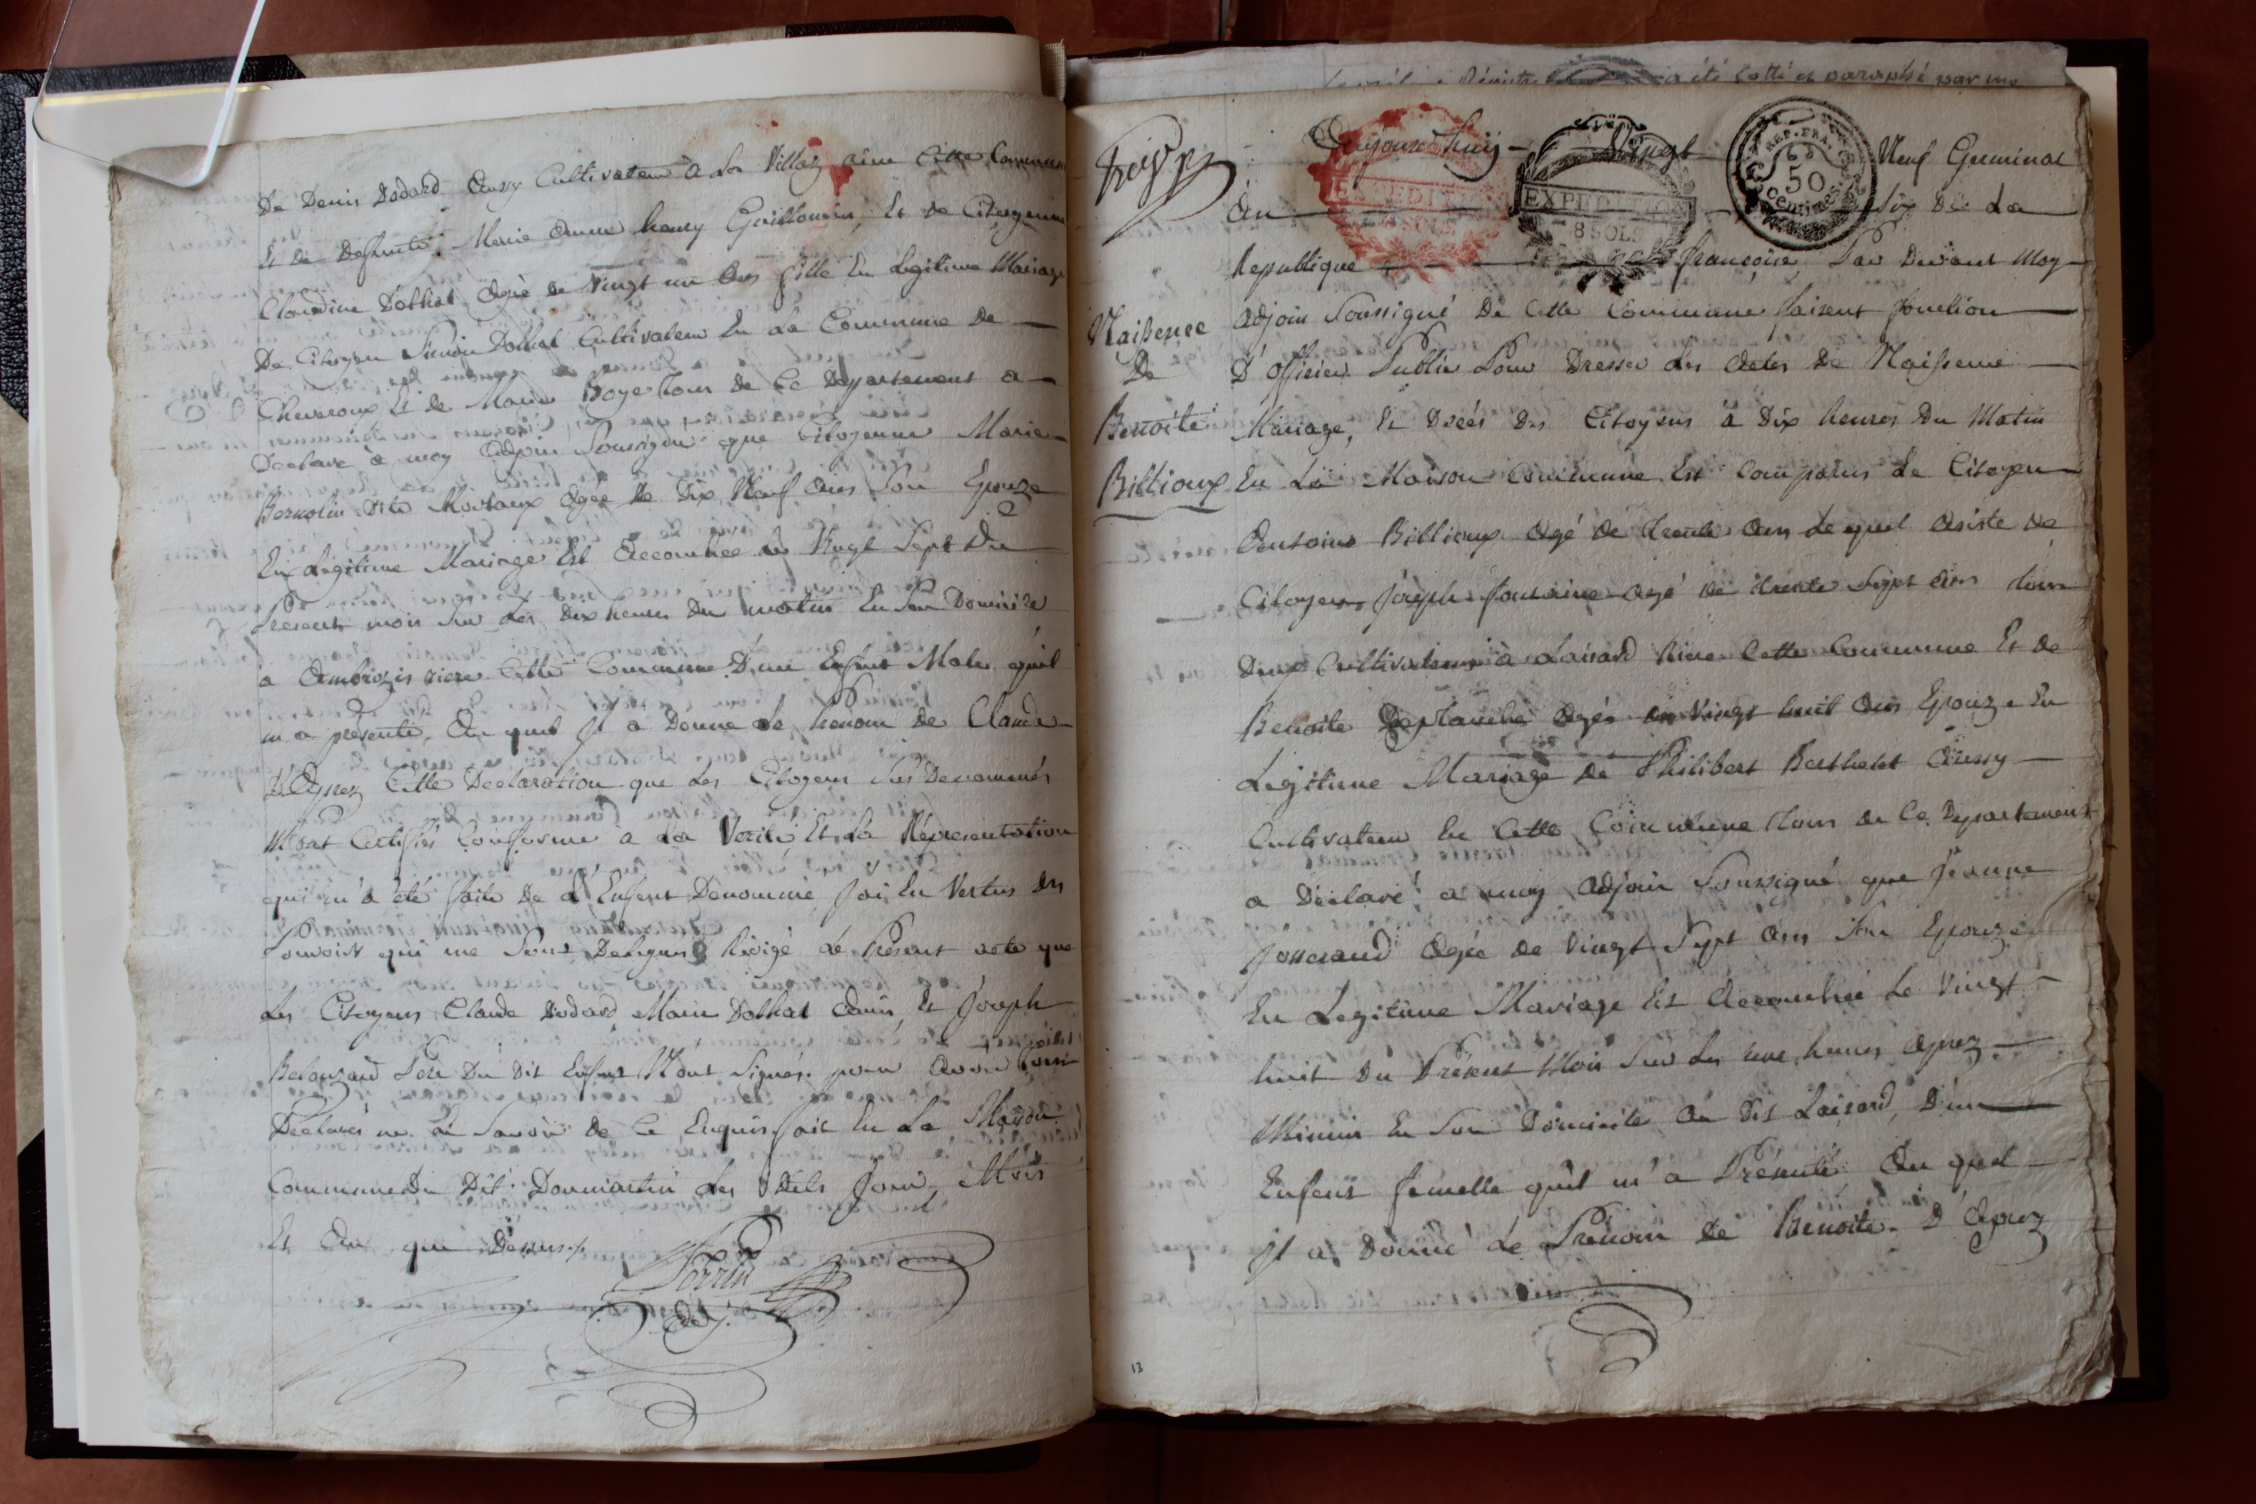 De Denis Dodard Aussy Cultivateur a La Villaz riere Cette Commune
Et de Defunte Marie Anne henry Guillomin, Et de Citoyenne
Claudine Dolhat Agée de Vingt un Ans fille En Legitime Mariage
De Citoyen Simon Dolhat Cultivateur En La Commune De
Chevroux Et de Marie Boyer tous de Ce Departement a
Declare à moy Adjoin Soussigné que Citoyenne Marie
dite Agée de Dix Neuf Ans Son Epouze
En Legitime Mariage Est Accouchée Le Vingt Sept Du
Present mois Sur Les Dix heures Du matin En Son Domicile
a riere Cette Commune D'un Enfant Male qu'il
m a presenté, Au quel Jl a Donné Le Prenom De Claude
D'Aprez Cette Declaration que Les Citoyens Sus Denommés
M'ont Certiffiés Conforme a La Verité Et La Representation
qui m'a été faite De L'Enfant Denommé J'ai En Vertus Des
Pouvoirs qui me Sont Delegués Rédigé Le Présent acte que
Les Citoyens Claude Dodard Marie Dolhat Amis Et Joseph
Pere Du Dit Enfant N'ont Signés pour Avoir
Declarés ne Le Savoir de Ce Enquis fait En La Maison
Commune Du Dit Dommartin Les Dits Jour Mois
Et An que Dessus
Perrin
Adj.
a été Cotté et paraphé par
Aujourd'huy Vingt Neuf Germinal
EXPEDITION
EXPEDITION
8 SOLS
REP. FRA.
50
Centimes
An Six De La
Republique françoise Par Devant Moy
Naissence
De
Benoite
Billioux
Adjoin Soussigné De Cette Commune faisent fonction
D'Officier Public Pour Dresser Les Actes De Naissence
Mariage, Et Decés Des Citoyens à Dix heures Du Matin
En La Maison Commune Est Comparus Le Citoyen
Antoine Billioux Agé de Trente Ans Le quel Asiste de
Citoyens Joseph fontaine Agé de trente Sept Ans tous
Deux Cultivateurs à Laisard Riere Cette Commune Et de
Benoite Deplanche Agée de Vingt huit Ans Epouze En
Legitime Mariage De Philibert Berthelet Aussy
Cultivateur En Cette Commune tous de Ce Departement
a Déclaré a moy Adjoin Soussigné que Jeanne
Josserand Agée de Vingt Sept Ans Son Epouze
En Legitime Mariage Est Accouchée Le Vingt
huit Du Présent Mois Sur Les heures Aprez
Minuit En Son Domicile Au Dit Laisard, D'un
Enfent femelle qu'il m'a Présenté, Au quel
Jl a Donné Le Prénom De Benoite. D'Aprez
13